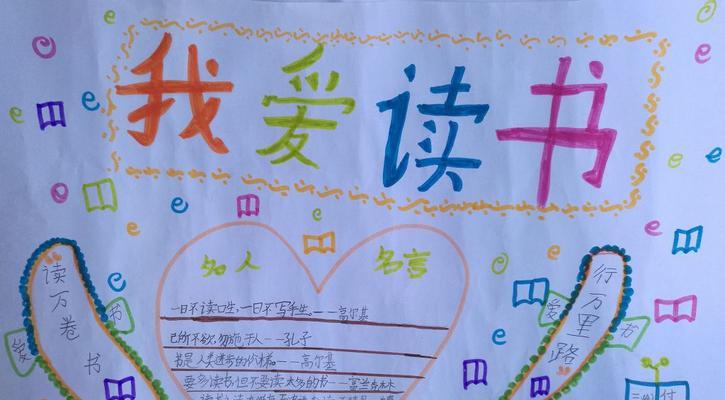 我爱读书
名人 名言
一日不读口生,一日不写手生。——高尔基
己所不欲,勿施于人——孔子
书是人类进步的阶梯。——高尔基
要多读书,但不要读太多的书——富兰克林
读万卷书
爱书
行万里路
爱书